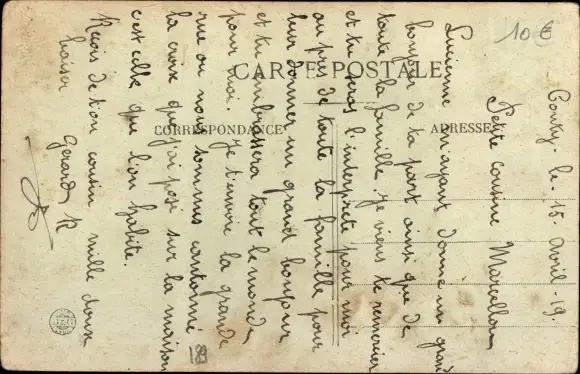 10 €
CARTE POSTALE
CORRESPONDANCE
ADRESSE
le 15 Avril 19
Petite cousine Marcelle
Lucienne m'ayant donné un grand
bonjour de ta part ainsi que de
toute la famille. Je viens te remercier
et tu seras l'interprète pour moi
au près de toute la famille pour
leur donner un grand bonjour
et tu embrassera tout le monde
pour moi. Je t'envoie la grande
rue ou nous sommes cantonné
la croix que j'ai posé sur la maison
c'est celle que l'on habite.
Reçois de ton cousin mille doux
baiser Gerard R
189